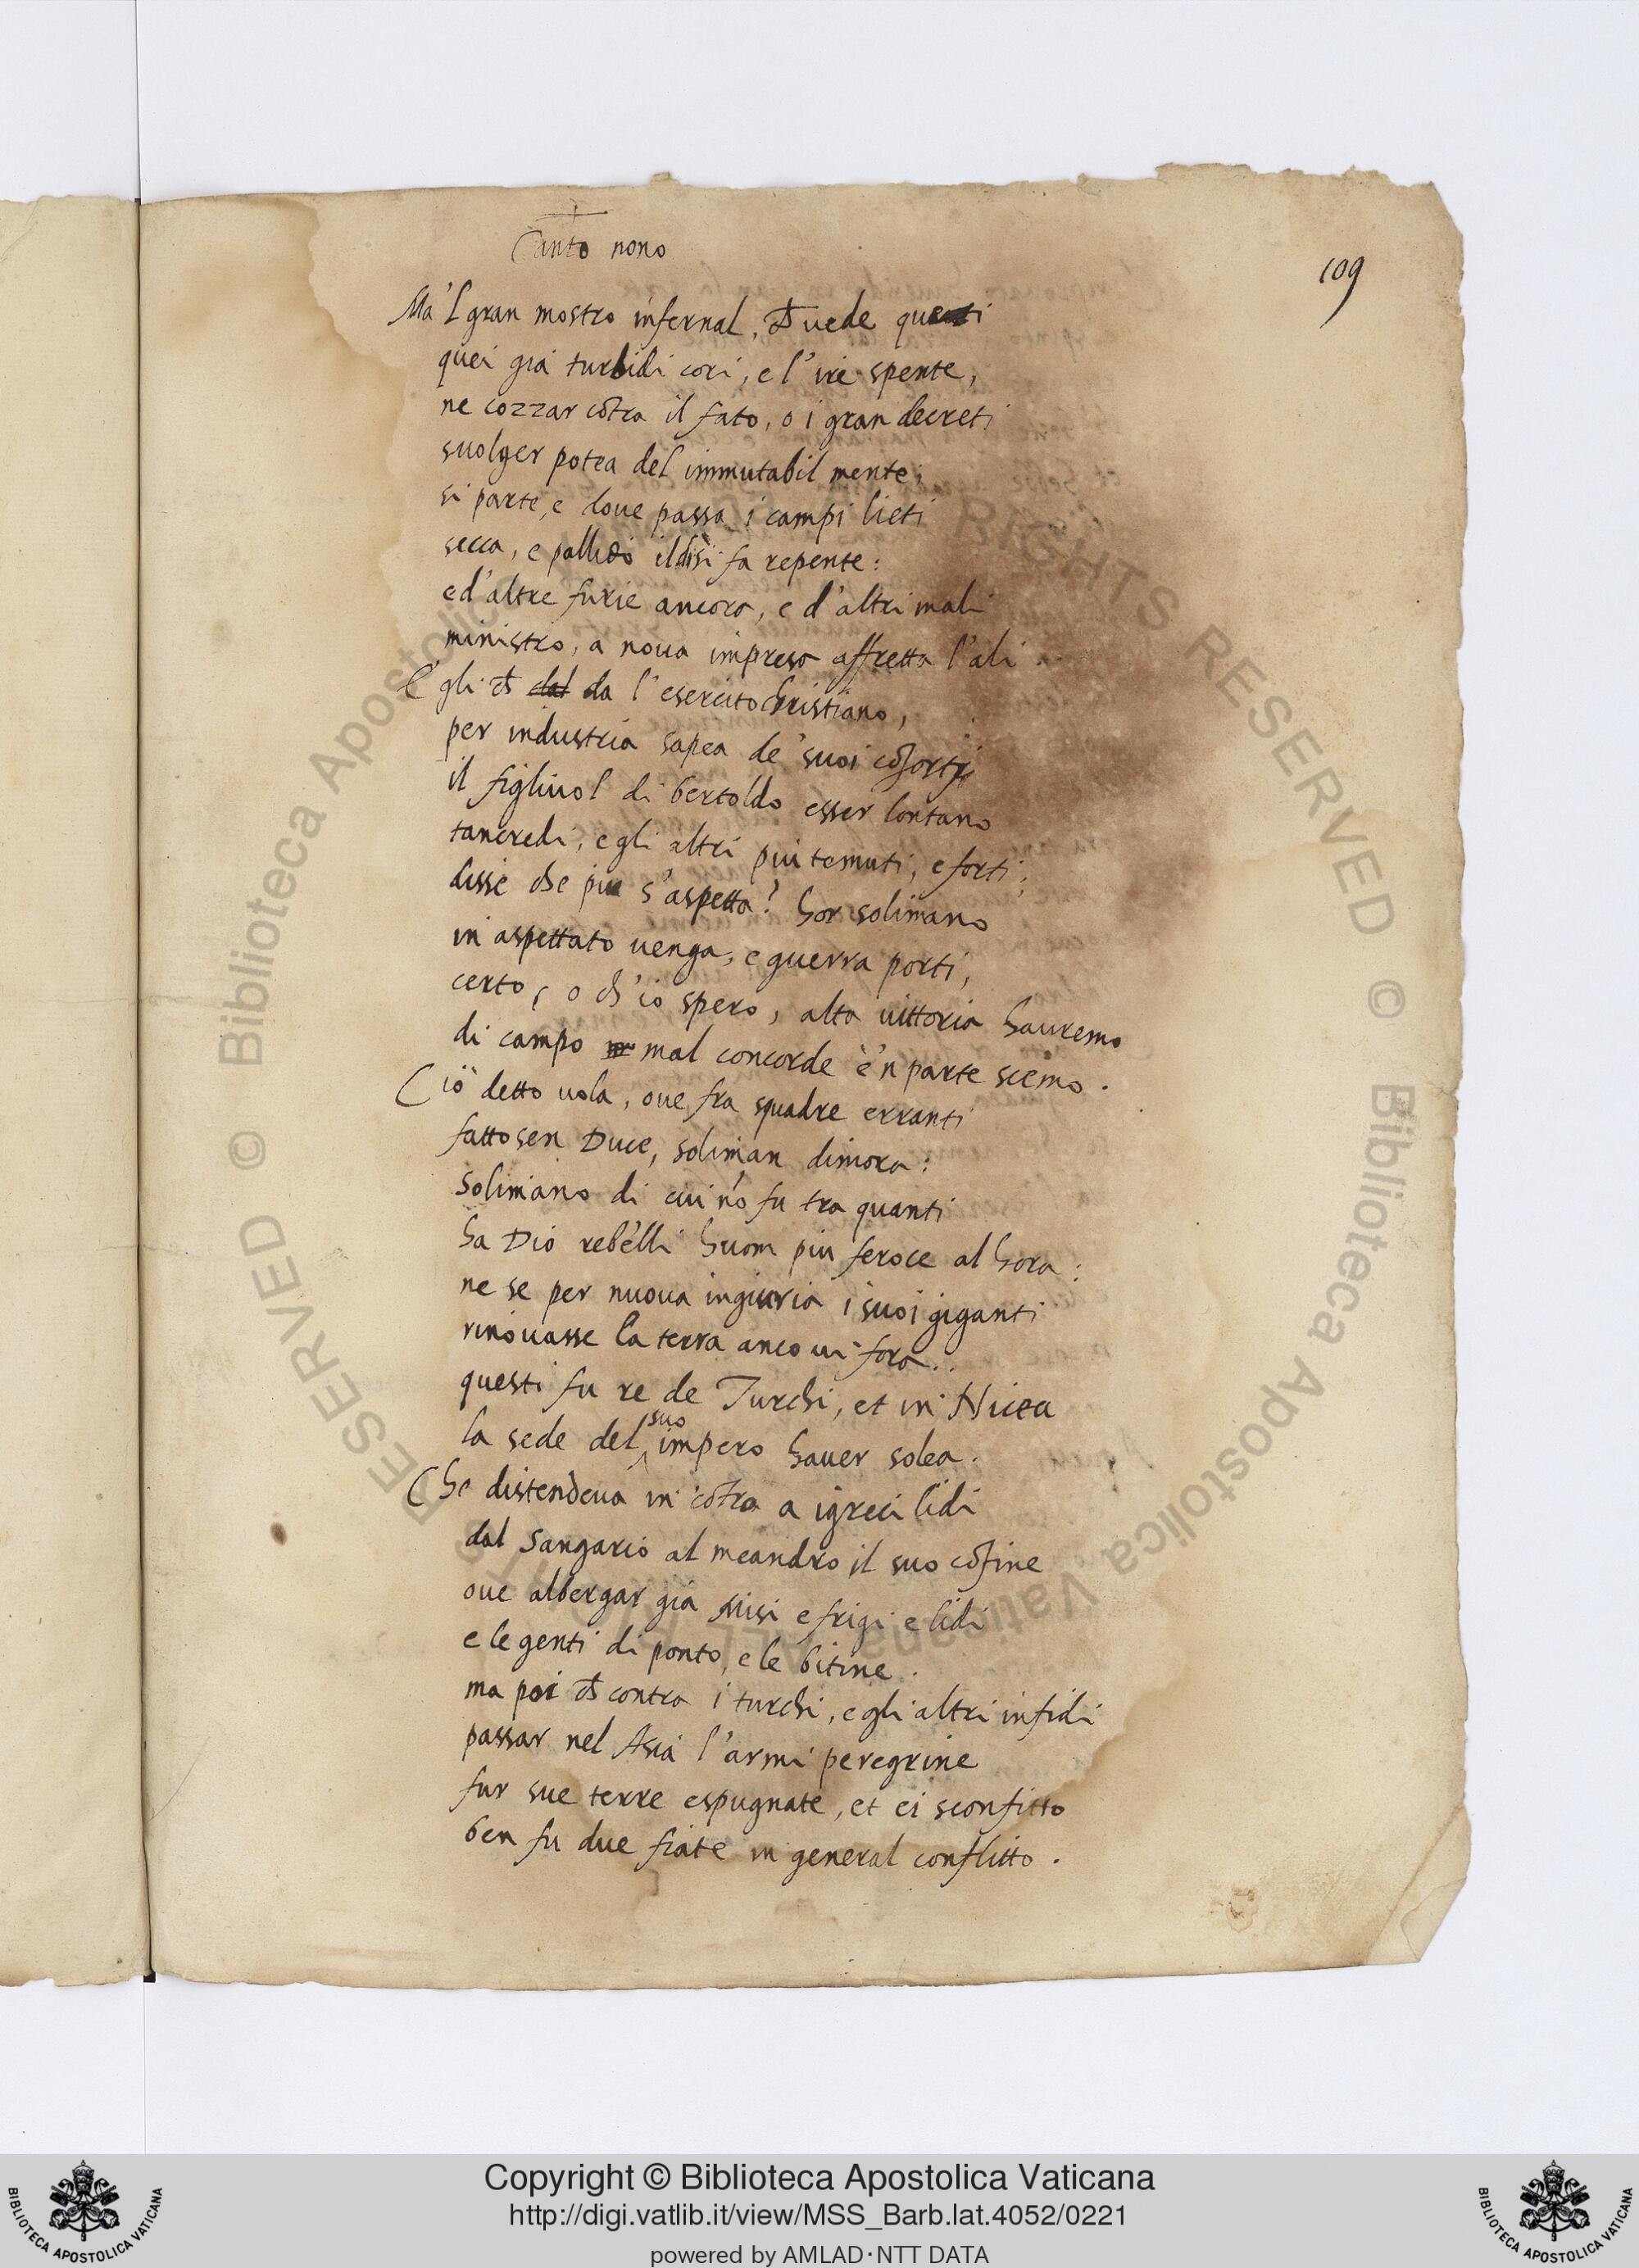 Canto nono
109
Ma 'l gran mostro infernal, ch̄ uede queti
quei già turbidi cori, e l'ire spente,
ne cozzar cōtra il fato, o i gran decreti
suolger potea del immutabil mente;
si parte, e doue passa i campi lieti
secca, e pallido il dì si fa repente:
e d'altre furie ancora, e d'altri mali
ministro, a noua impresa affretta l'ali
Egli ch̄ dal da l'esercito christiano,
per industria sapea de' suoi cōsorti
il figliuol di bertoldo esser lontano
tancredi, e gli altri piu temuti, e forti;
disse che piu s'aspetta? hor solimano
in aspettato uenga, e guerra porti,
certo, o ch'io spero, alta uittoria hauremo
di campo mal concorde e 'n parte scemo.
Ciò detto uola, oue fra squadre erranti
fattosen Duce, soliman dimora:
Solimano di cui nō fu tra quanti
ha Dio rebelli huom piu feroce al hora:
ne se per nuoua ingiuria i suoi giganti
rinouasse la terra anco ui fora..
questi fu re de Turchi, et in Nicea
la sede del suo impero hauer solea.
Che distendeua in cōtra a i greci lidi
dal Sangario al meandro il suo cōfine
oue albergar già Misi e frigi e lidi
e le genti di ponto, e le bitine.
ma poi ch̄ contra i turchi, e gli altri infidi
passar nel Asia l'armi peregrine
fur sue terre espugnate, et ei sconfitto
ben fu due fiate in general conflitto.
RIGHTS RESERVED © Biblioteca Apostolica Vaticana
Copyright © Biblioteca Apostolica Vaticana
http://digi.vatlib.it/view/MSS_Barb.lat.4052/0221
powered by AMLAD·NTT DATA
BIBLIOTECA APOSTOLICA VATICANA
BIBLIOTECA APOSTOLICA VATICANA